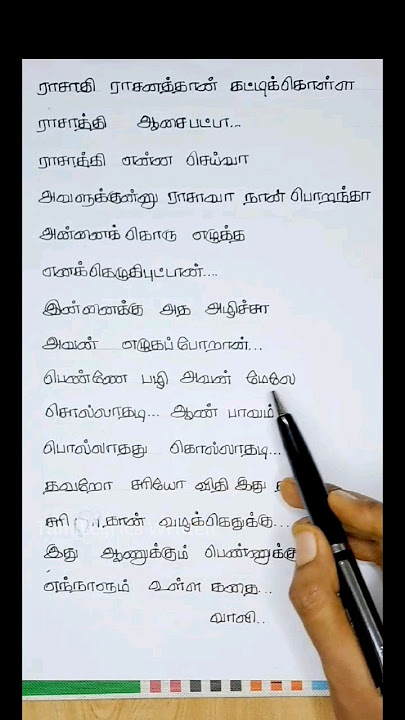 ராசாதி ராசனத்தான் கட்டிக்கொள்ள
ராசாத்தி ஆசைபட்டா...
ராசாத்தி என்ன செய்வா
அவளுக்குன்னு ராசாவா நான் பொறந்தா
அன்னைக் கொரு எழுத்த
எனக்கெழுதிபுட்டான்....
இன்னைக்கு அத அழிச்சா
அவன் எழுதப்போறான்...
பெண்ணே பழி அவன் மேலே
சொல்லாதடி... ஆண் பாவம்
பொல்லாதது கொல்லாதடி...
தவறோ சரியோ விதி இது
சரி வடிக்கெதுக்கு...
இது ஆணுக்கும் பெண்ணுக்கு
எந்நாளும் உள்ள கதை...
வாலி..